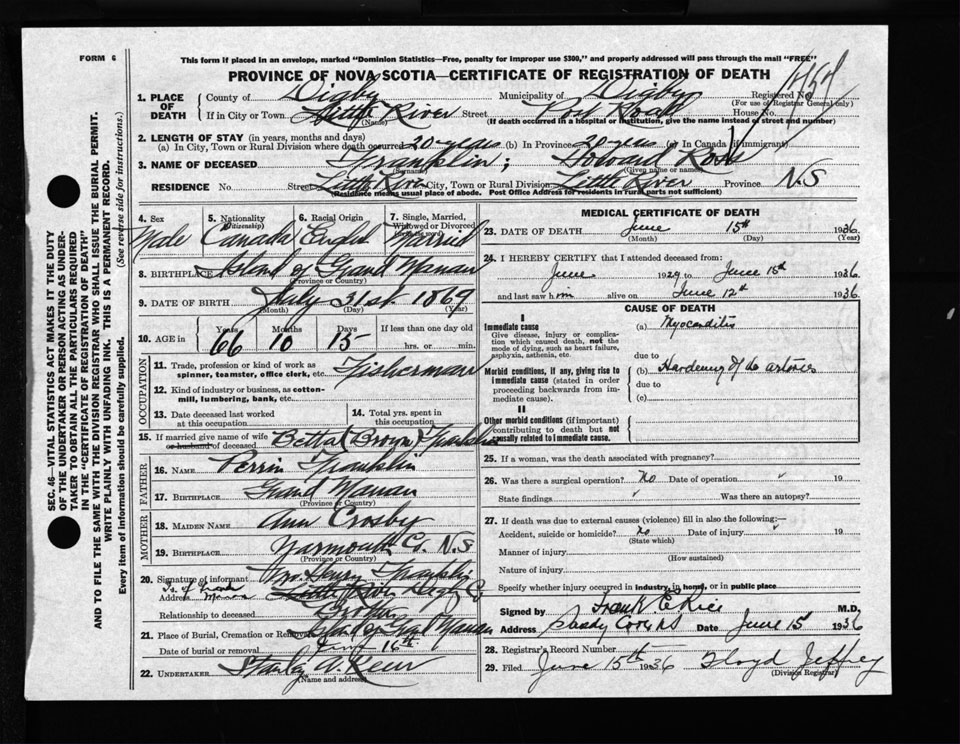 FORM 6
This form if placed in an envelope, marked "Dominion Statistics—Free, penalty for improper use $300," and properly addressed will pass through the mail "FREE"
PROVINCE OF NOVA SCOTIA—CERTIFICATE OF REGISTRATION OF DEATH
1. PLACE OF DEATH County of Digby Municipality of Digby Registered No.
(For use of Registrar General only)
If in City or Town Little River Street Post Road House No.
(Name) (If death occurred in a hospital or institution, give the name instead of street and number)
2. LENGTH OF STAY (in years, months and days)
(a) In City, Town or Rural Division where death occurred 20 years (b) In Province 20 years (c) In Canada (if immigrant)
3. NAME OF DECEASED Franklin; Howard Ross
(Surname) (Given name or names)
RESIDENCE No. Street Little River City, Town or Rural Division Little River Province N.S
Residence means usual place of abode. Post Office Address for residents in rural parts not sufficient)
4. Sex Male
5. Nationality (Citizenship) Canada
6. Racial Origin English
7. Single, Married, Widowed or Divorced Married
8. BIRTHPLACE Island of Grand Manan
(Province or Country)
9. DATE OF BIRTH July 31st 1869
(Month) (Day) (Year)
10. AGE in Years 66 Months 10 Days 15 If less than one day old hrs. or min.
OCCUPATION
11. Trade, profession or kind of work as spinner, teamster, office clerk, etc. Fisherman
12. Kind of industry or business, as cotton-mill, lumbering, bank, etc.
13. Date deceased last worked at this occupation
14. Total yrs. spent in this occupation
15. If married give name of wife or husband of deceased Brown Franklin
FATHER
16. NAME Perrin Franklin
17. BIRTHPLACE Grand Manan
(Province or Country)
MOTHER
18. MAIDEN NAME Ann Crosby
19. BIRTHPLACE Yarmouth Co. N.S
(Province or Country)
20. Signature of informant Henry Franklin
Address Is. of Grand Manan Little River Digby Co
Relationship to deceased Brother
21. Place of Burial, Cremation or Removal Island of Grand Manan
Date of burial or removal June 16th
22. UNDERTAKER Stanley A.
(Name and address)
MEDICAL CERTIFICATE OF DEATH
23. DATE OF DEATH June 15th 1936
(Month) (Day) (Year)
24. I HEREBY CERTIFY that I attended deceased from:
June 1929 to June 15th 1936
and last saw him alive on June 12th 1936
CAUSE OF DEATH
I
Immediate cause (a) Myocarditis
Give disease, injury or complication which caused death, not the mode of dying, such as heart failure, asphyxia, asthenia, etc.
due to
Morbid conditions, if any, giving rise to immediate cause (stated in order proceeding backwards from immediate cause). (b) Hardening of the arteries
due to
(c)
II
Other morbid conditions (if important) contributing to death but not causally related to immediate cause.
25. If a woman, was the death associated with pregnancy?
26. Was there a surgical operation? No Date of operation 19
State findings Was there an autopsy?
27. If death was due to external causes (violence) fill in also the following:—
Accident, suicide or homicide? no Date of injury 19
(State which)
Manner of injury
(How sustained)
Nature of injury
Specify whether injury occurred in industry, in home, or in public place
Signed by Frank E Rice M.D.
Address Sandy Cove NS Date June 15 1936
28. Registrar's Record Number
29. Filed June 15th 1936 Floyd Jeffrey
(Division Registrar)
SEC. 46—VITAL STATISTICS ACT MAKES IT THE DUTY
OF THE UNDERTAKER OR PERSON ACTING AS UNDER-
TAKER TO OBTAIN ALL THE PARTICULARS REQUIRED
IN THE "CERTIFICATE OF REGISTRATION OF DEATH"
AND TO FILE THE SAME WITH THE DIVISION REGISTRAR WHO SHALL ISSUE THE BURIAL PERMIT.
WRITE PLAINLY WITH UNFADING INK. THIS IS A PERMANENT RECORD.
Every item of information should be carefully supplied. (See reverse side for instructions.)